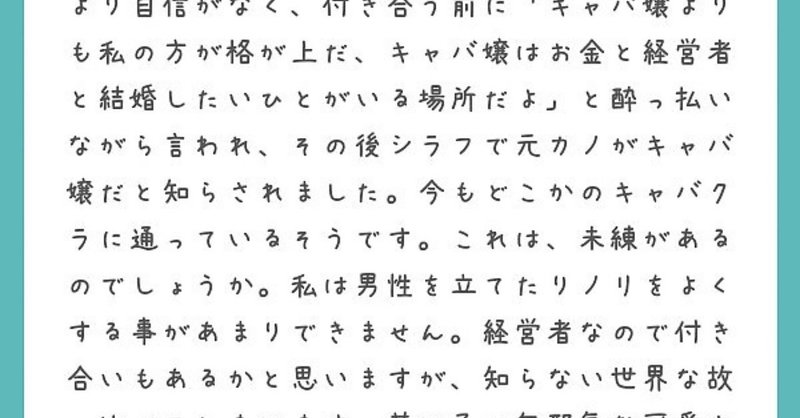 より自信がなく、付き合う前に「キャバ嬢より
も私の方が格が上だ、キャバ嬢はお金と経営者
と結婚したいひとがいる場所だよ」と酔っ払い
ながら言われ、その後シラフで元カノがキャバ
嬢だと知らされました。今もどこかのキャバク
ラに通っているそうです。これは、未練がある
のでしょうか。私は男性を立てたりノリをよく
する事があまりできません。経営者なので付き
合いもあるかと思いますが、知らない世界な故